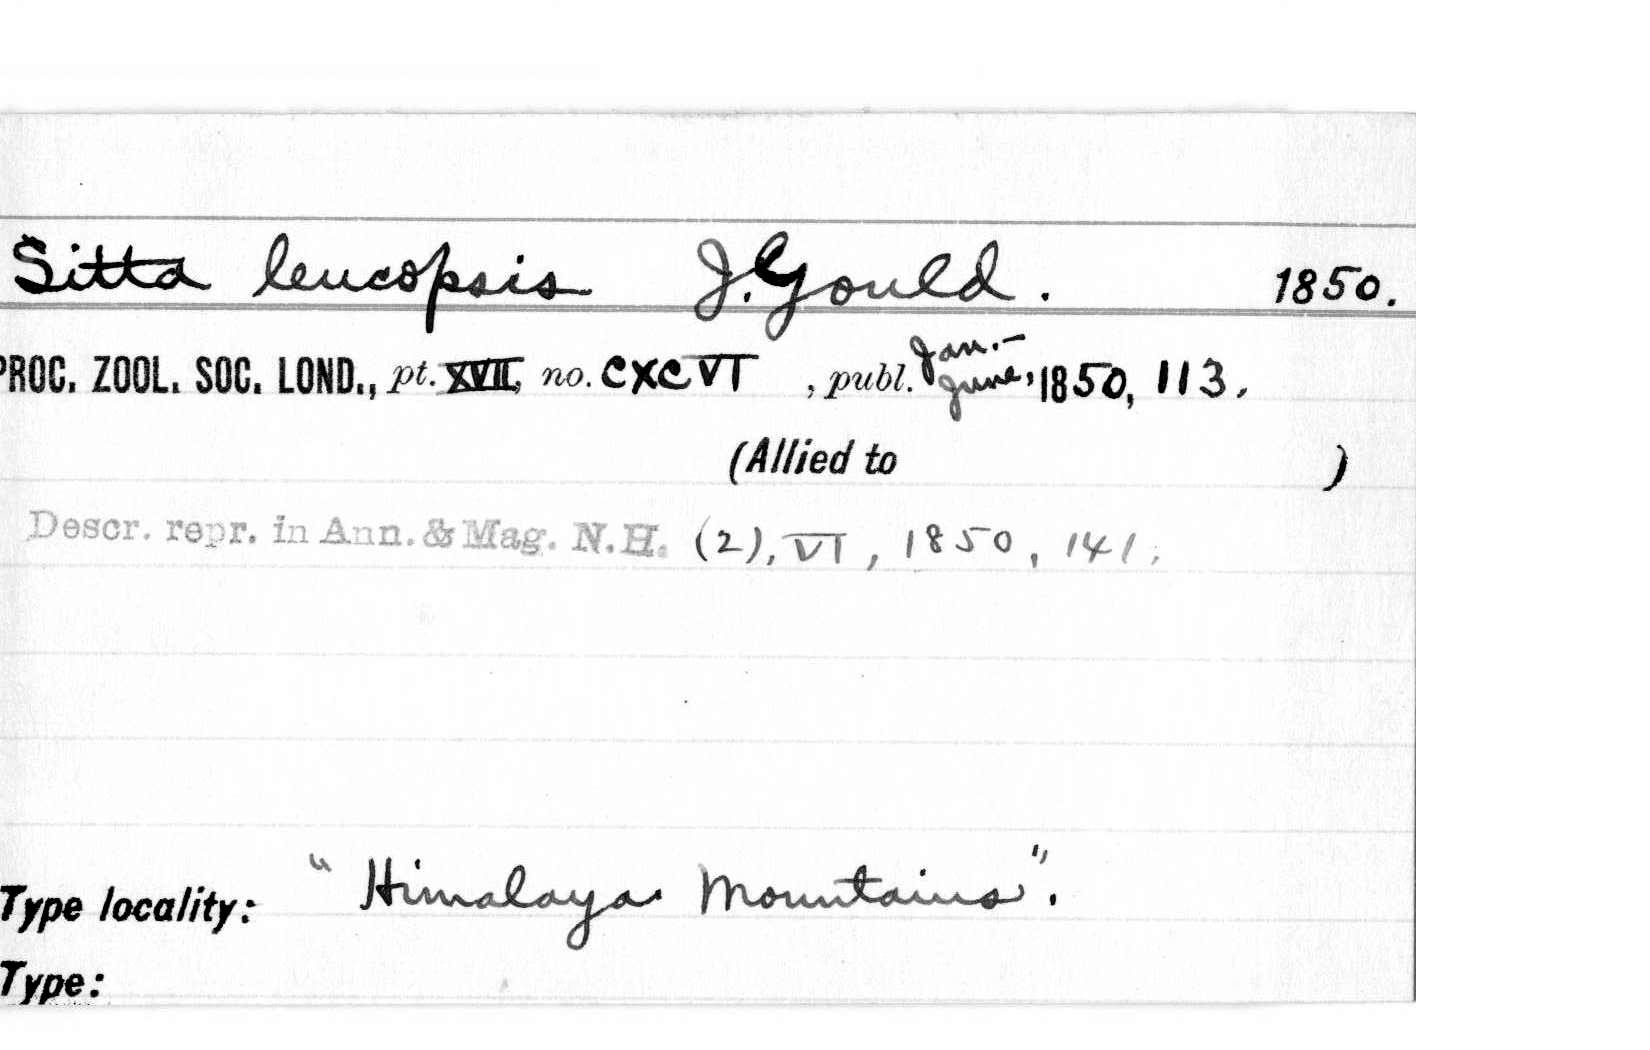 Sitta leucopsis J. Gould. 1850.
PROC. ZOOL. SOC. LOND., pt. XVII, no. CXCVI, publ. Jan.-June, 1850, 113.
(Allied to )
Descr. repr. in Ann. & Mag. N.H. (2), VI, 1850, 141.
Type locality: "Himalaya Mountains".
Type: